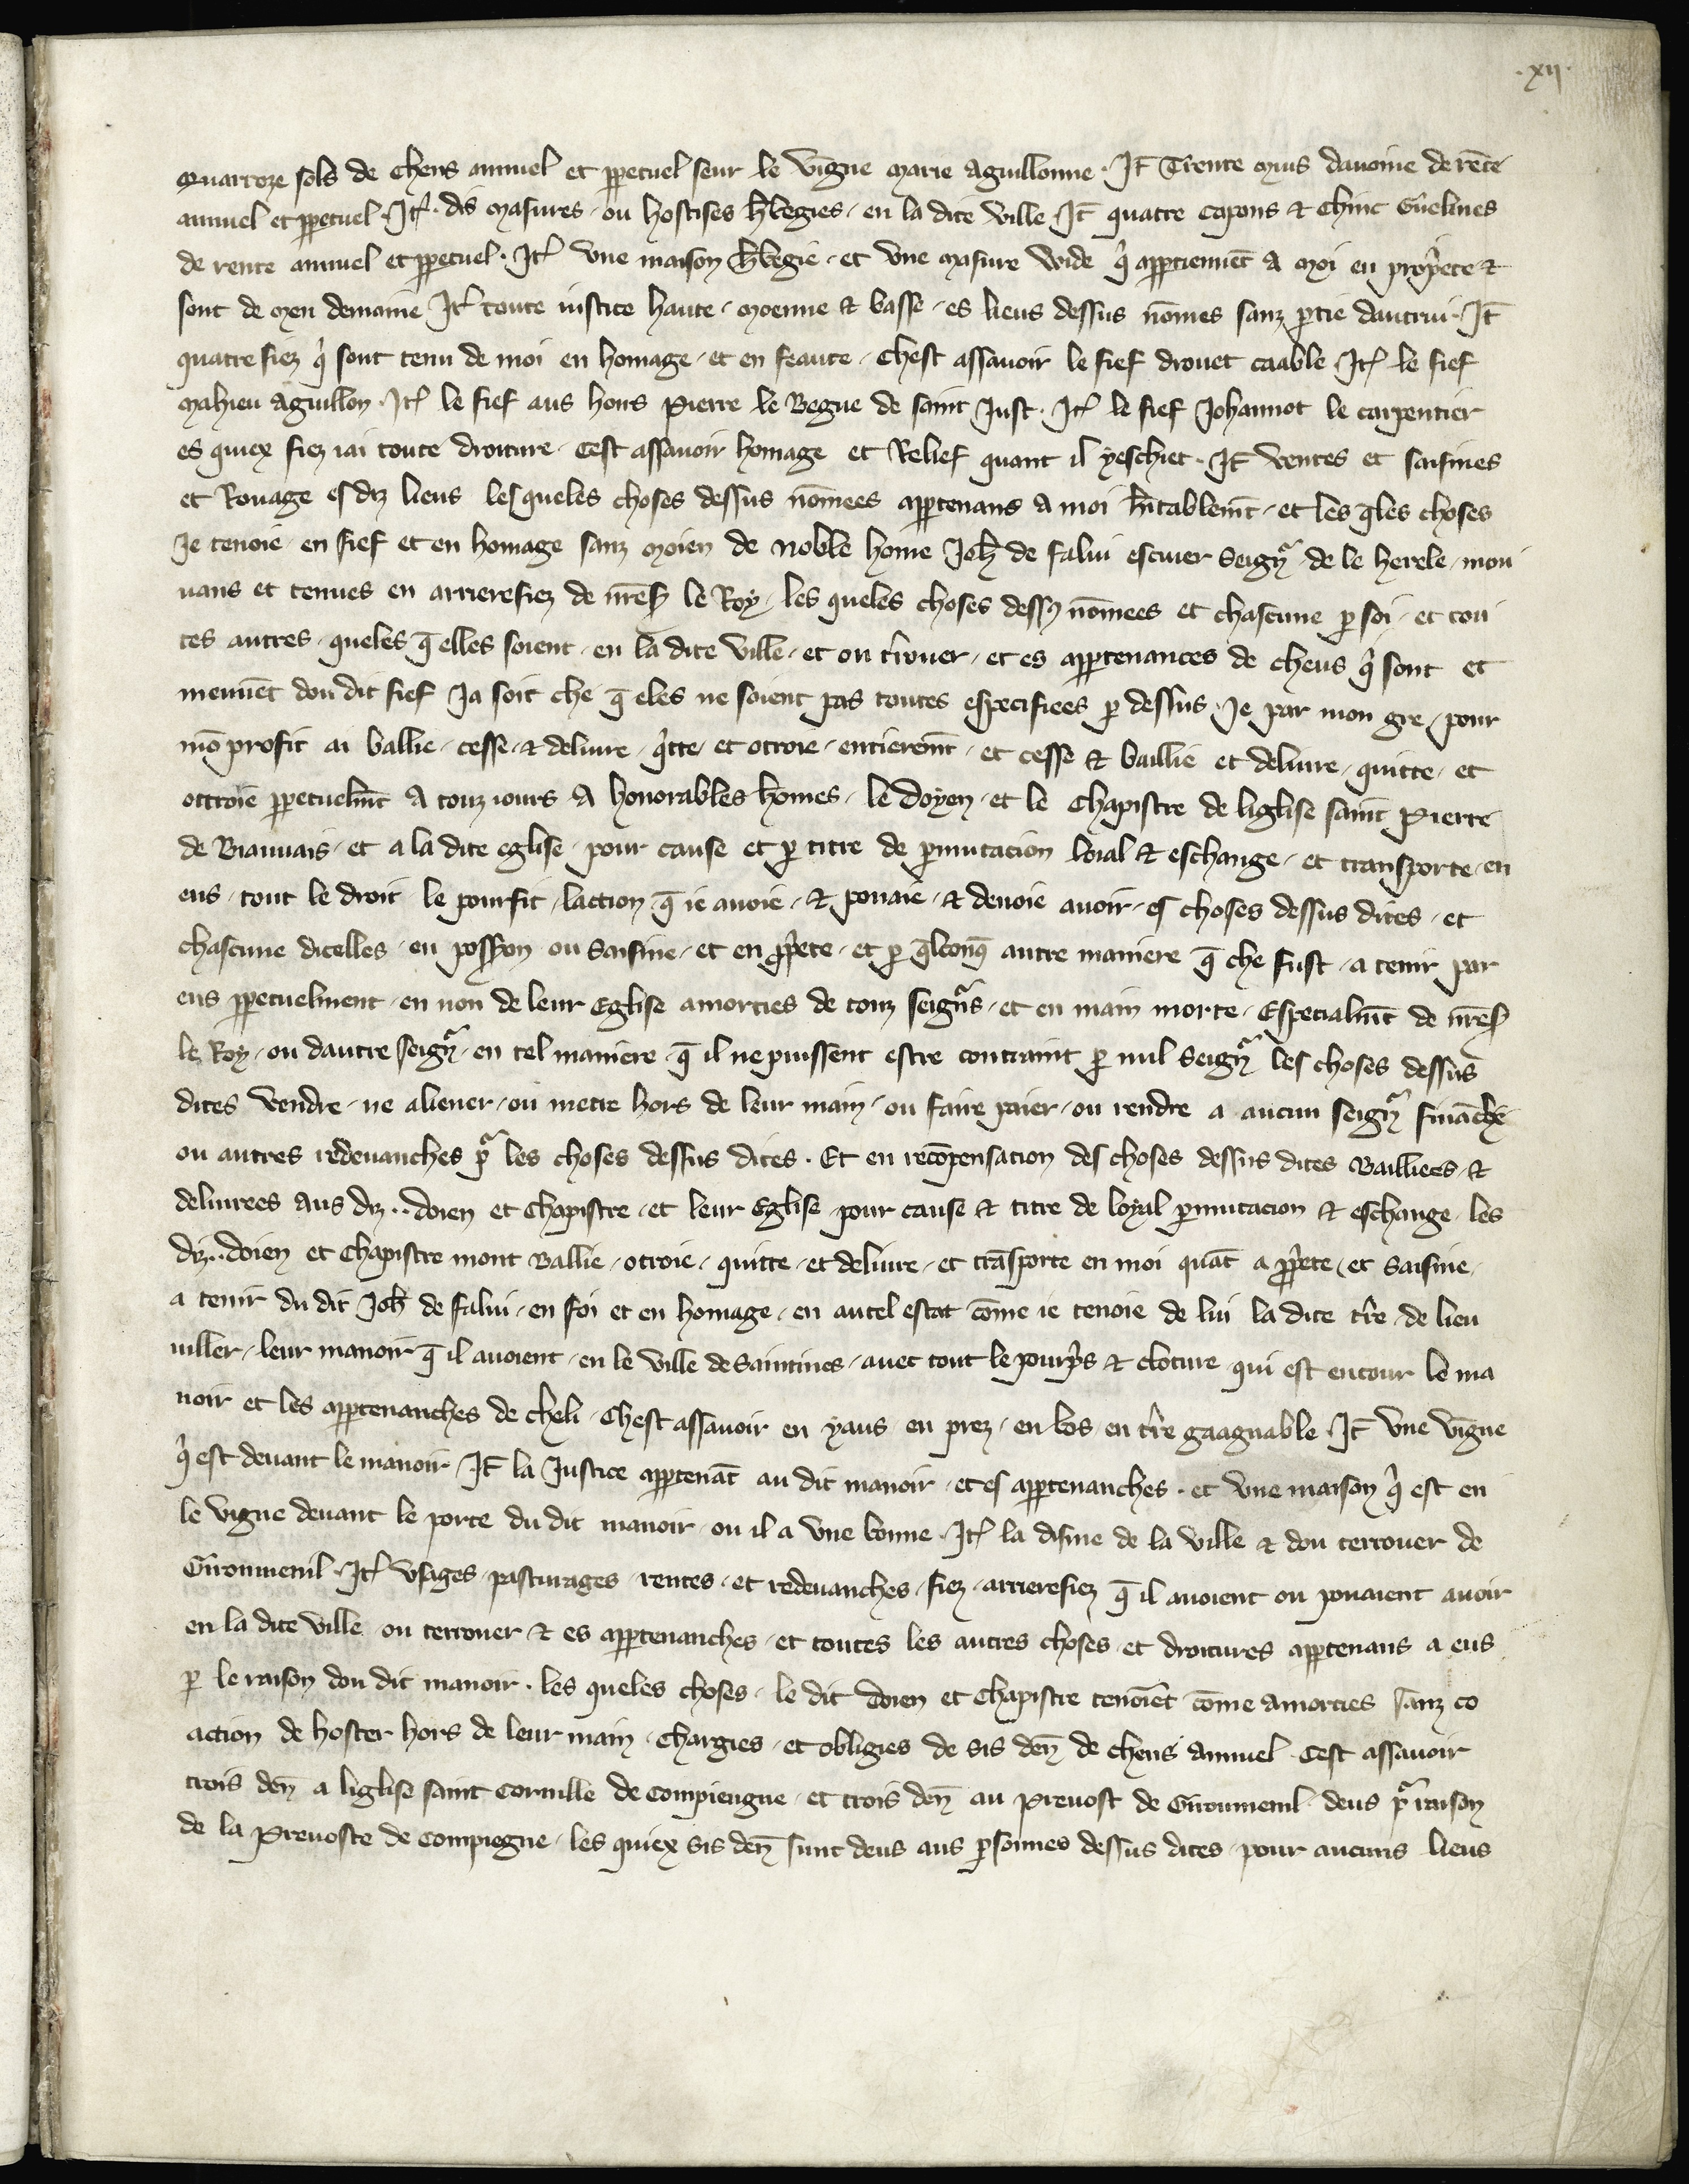 .xii.
Quatorze sols de chens annuel et ppetuel seur le vigne Marie aguillonne . It̄ Trente Muis davoine de rente
annuel et ppetuel . Itē . dis Masures . ou hostises h̄begies . en la dite ville . It̄ quatre capons & chinc Guelines
de rente annuel et ppetuel . Itē vne maison h̄begie . et vne Masure wide qi apptiennēt a Moi en propiete &
sont de Men demaine Itē toute iustice haute . Moenne & basse . es lieus dessus nōmes sanz ptie dautrui . It̄
quatre fiez qi sont tenu de moi en homage . et en feaute . chest assavoir le fief drouet caable Itē le fief
Mahieu aguillon . Itē le fief aus hoirs Pierre le Begue de saint Just . Itē le fief Johannot le carpentier
es quiex fiez iai toute droiture . cest assavoir homage et Relief quant il yeschiet . It̄ ventes et saisines
et Rouage es dz lieus les queles choses dessus nōmees apptenans a moi h̄itablemt̄ . et les q̄les choses
Je tenoie en fief et en homage sanz Moien de noble home Joh̄ de falui escuier seigr de le herele . mou
uans et tenues en arrierefiez de nr̄es le Roy . les queles choses dessꝰ nōmees et chascune p soi . et tou
tes autres . queles q̄ elles soient . en la dite ville . et ou tˀrouer . et es apptenances de cheus qi sont et
meuuēt dou dit fief Ja soit che q̄ eles ne soient pas toutes especifiees p dessus . Je par mon gre . pour
mō profit ai ballie . cesse . & deliure . qitte et otroie . entieremt̄ . et cesse & baillie et deliure . quitte . et
ottroie ppetuelmt̄ a touz iours a honorables hōmes . le doyen . et le chapistre de liglise saint Pierre
de Biauuais . et a la dite eglise . pour cause et p titre de pmutacion loial & eschange . et transporte . en
eus . tout le droit . le pourfit . laction q̄ ie auoie . & pouaie . & deuoie auoir . es choses dessus dites . et
chascune dicelles . en possˀon ou saisine . et en ppiete . et p q̄lconq̄ autre maniere q̄ che fust . a tenir par
eus ppetuelment . en non de leur Eglise amorties de touz seigrs . et en main morte . Especialmt̄ de nr̄es
le Roy . ou dautre seigr . en tel maniere . q̄ il ne puissent estre contraint p nul seigr les choses dessus
dites vendre . ne aliener . ou metre hors de leur main . ou faire paier . ou rendre a aucun seigr fināche
ou autres redeuanches pr les choses dessus dites . Et en recōpensacion des choses dessus dites Bailliees . &
deliurees aus dz . . doien et chapistre . et leur Eglise . pour cause & titre de loyal pmutacion & eschange . les
dz . . doien et chapistre mont Ballie . otroie . quitte . et deliure . et trāsporte en moi quāt a ppiete . et saisine .
a tenir du dit Joh̄ de falui . en foi et en homage . en autel estat cōme ie tenoie de lui la dite tˀre . de lieu
uiller . leur manoir q̄ il auoient . en le ville de saintines . auec tout le pourpis & cloture qui est entour le ma
noir et les apptenanches de cheli . chest assavoir en yaus en prez . en bos en tˀre gaagnable . It̄ vne vigne
qi est deuant le manoir . It̄ la Justice apptenāt au dit manoir . et es apptenanches . et vne maison qi est en
le vigne deuant le porte du dit manoir ou il a vne bonne . Itē la disme de la ville & dou terrouer de
Giroumenil . Itē vsages pasturages . rentes . et redeuanches . fiez . arrierefiez q̄ il auoient ou pouaient auoir
en la dite ville ou terrouer & es apptenanches . et toutes les autres choses . et droitures apptenans a eus
p le raison dou dit manoir . les queles choses . le dit doien et chapistre tenoiēt cōme amorties sanz co
action de hoster hors de leur main . chargies . et obligies de sis den̄ de chens annuel . cest assavoir
trois den̄ a liglise saint cornille de compiengne . et trois den̄ au Preuost de Giroumenil . deus pr raison
de la Preuoste de compiegne . les quiex sis den̄ sunt deus aus psonnes dessus dites . pour aucuns lieus